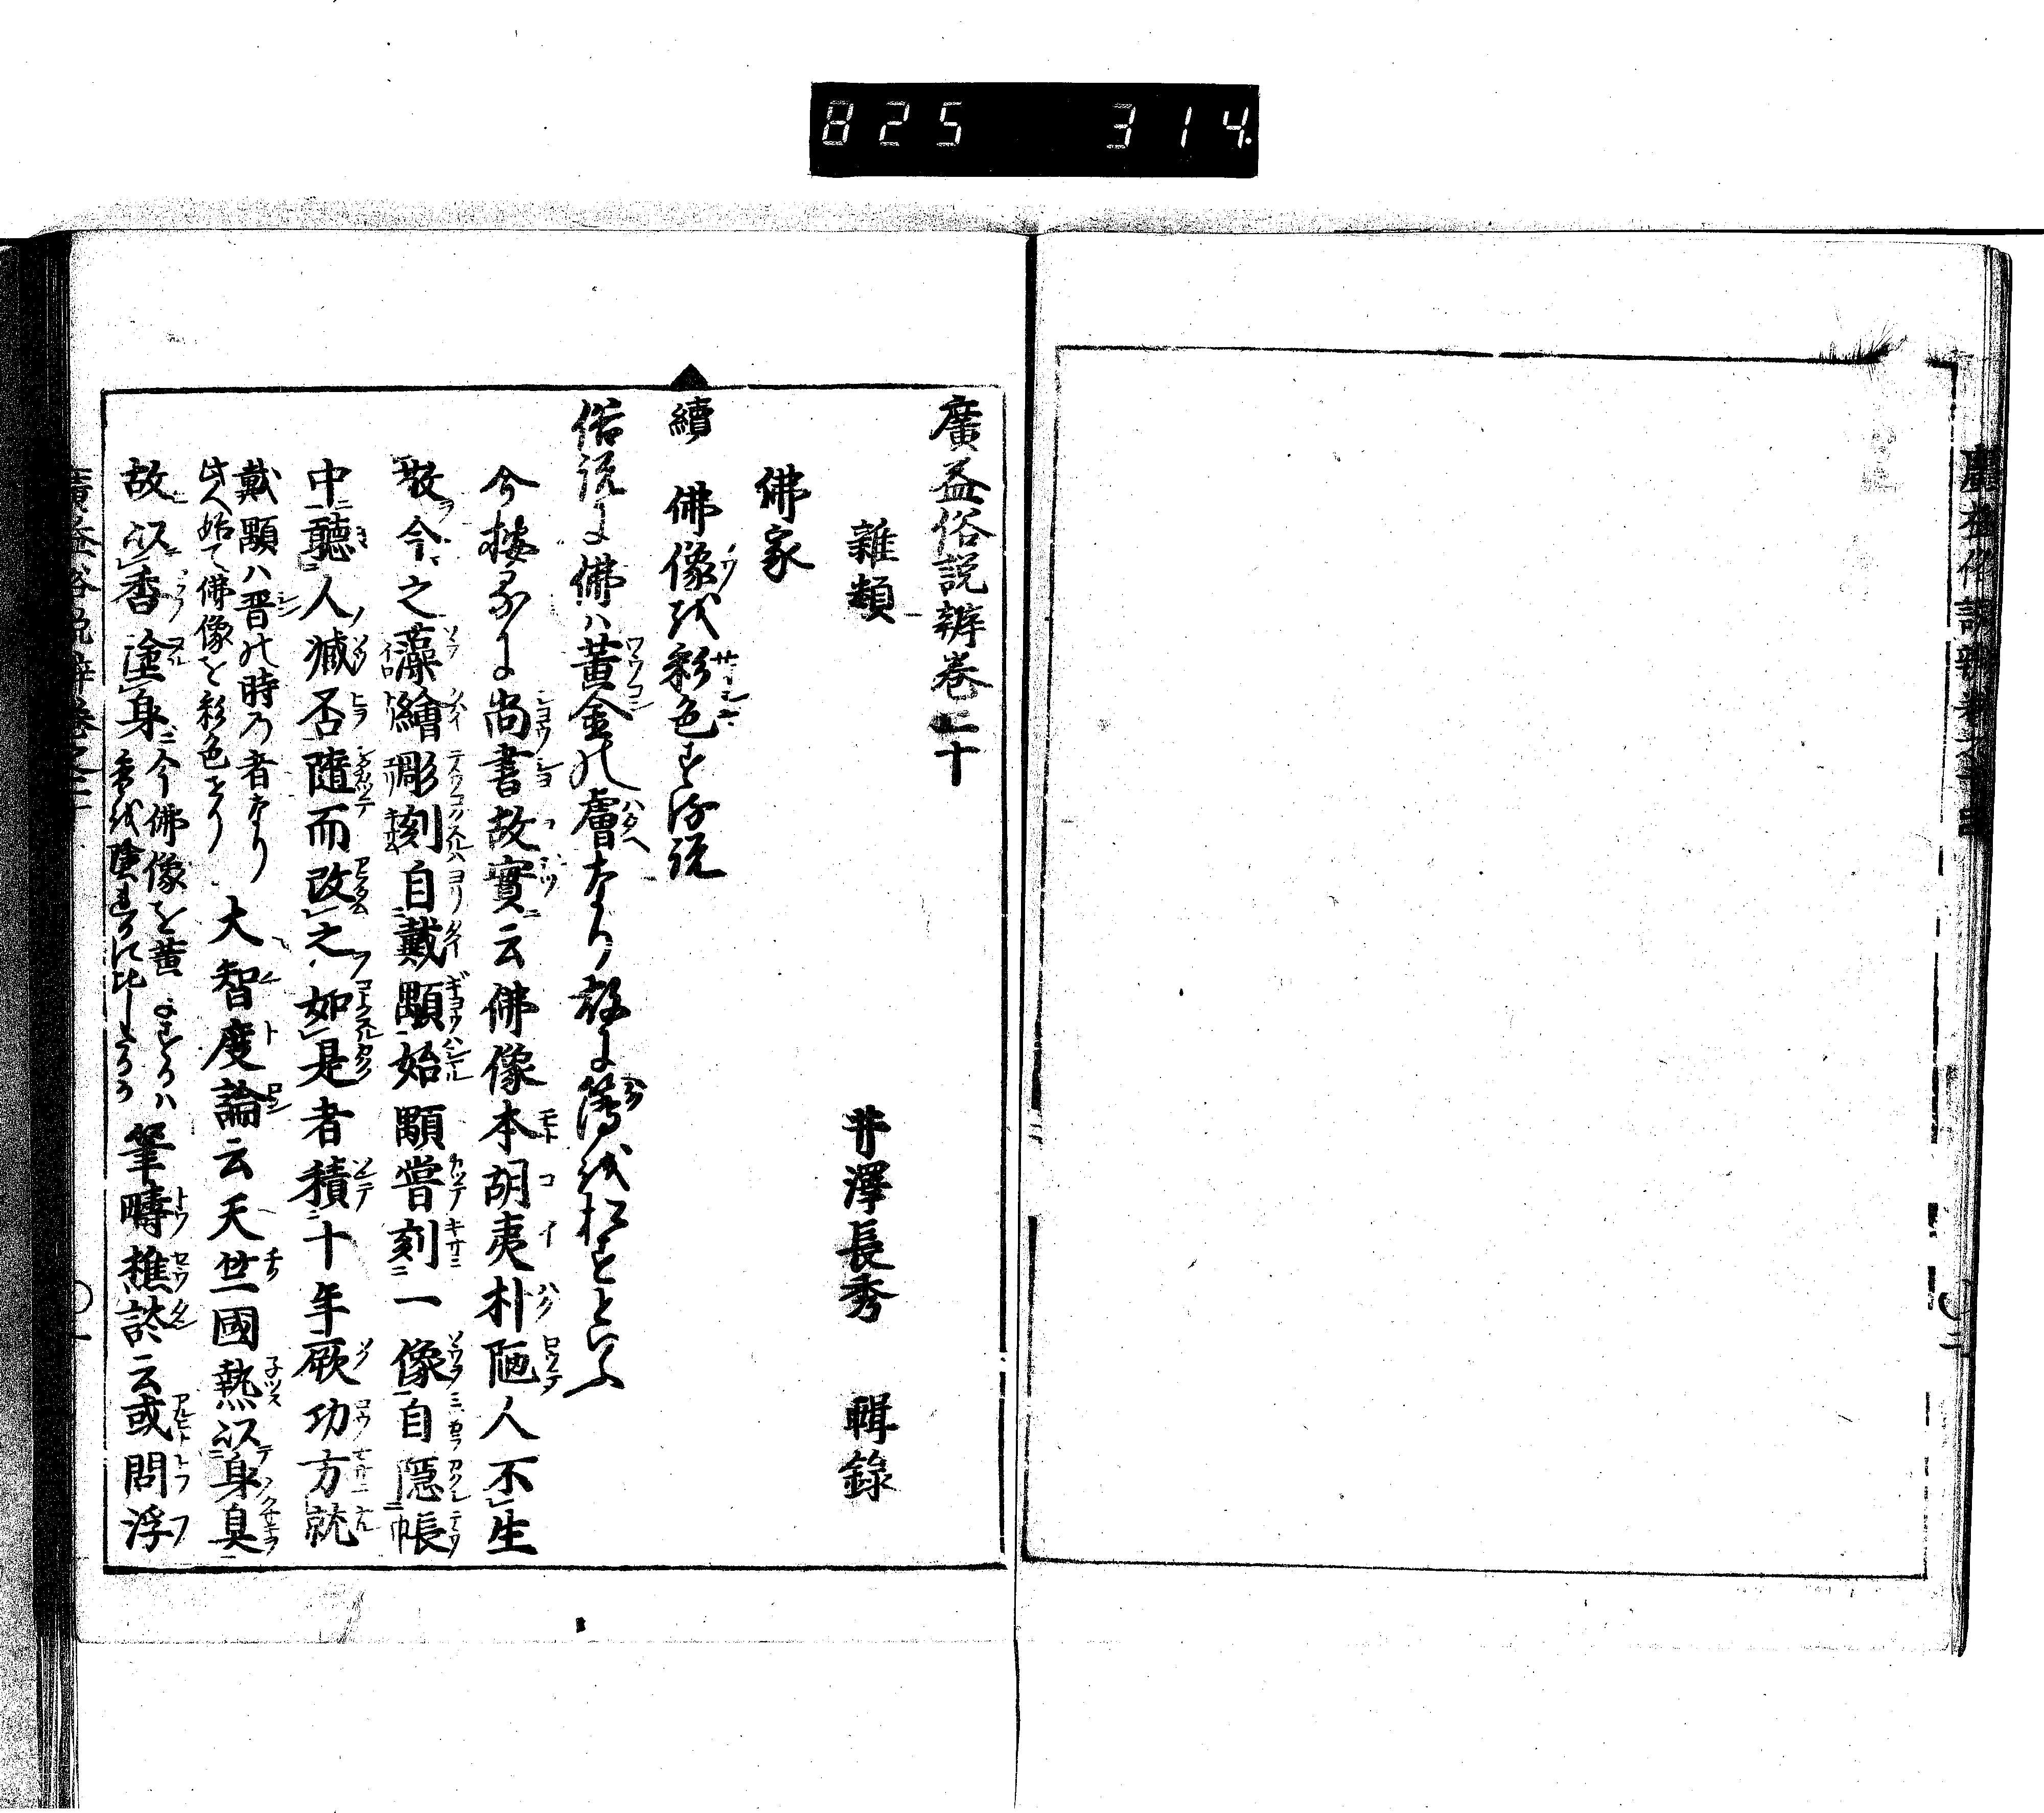 825 314
廣益俗説辨巻二十
雜類
井澤長秀 輯錄
佛家
續 佛像を彩色する説
俗説に佛ハ黄金の膚なり故に薄を松すといふ
今按るに尚書故實云佛像本胡夷朴陋人不生
敬今之藻繪彫刻自戴顒始顒嘗刻一像自隱帳
中聽人臧否隨而改之如是者積十年厥功方就
戴顒ハ晋の時の者なり
此人始て佛像を彩色せり
大智度論云天竺國熱以身臭
故以香塗身
今佛像を黄にするハ
香を塗るに比したる
筆疇樵談云或問浮